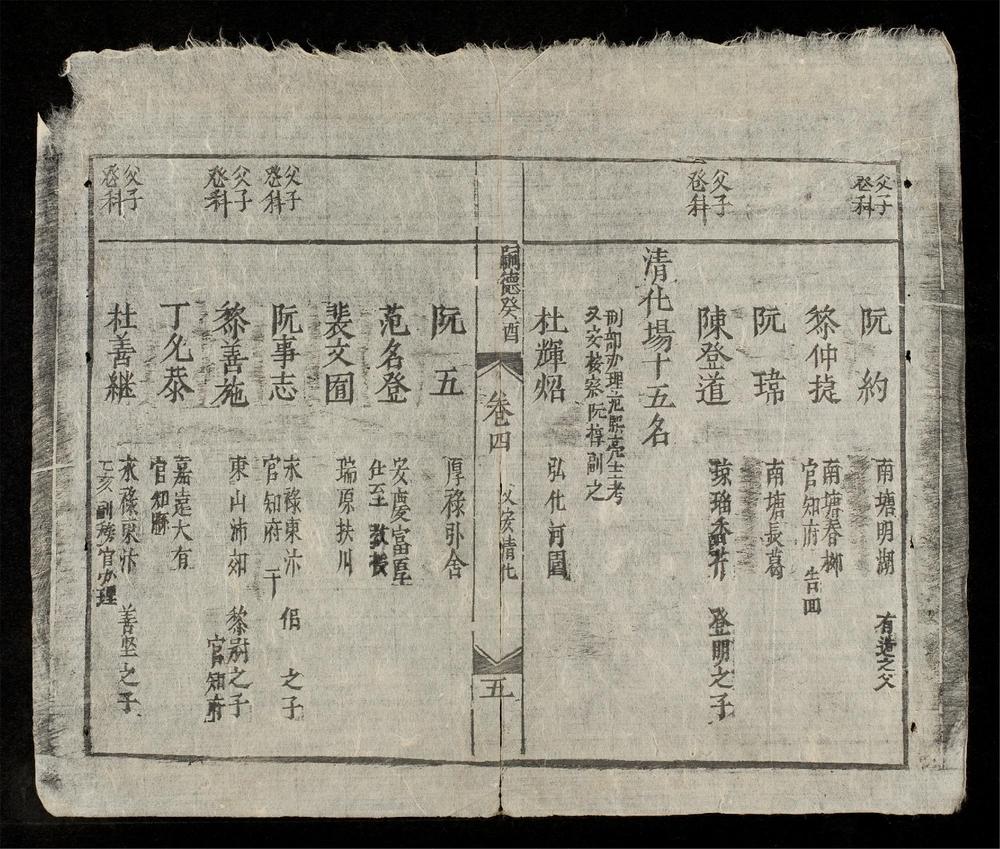 父子登科
阮約 南塘明湖 有造之父
黎仲㨗 南塘春柳 官知府 告回
阮瑋 南塘長葛
父子登科
陳登道 瓊瑠香芹 登明之子
清化場十五名
刑部办理范熙亮主考
乂安按察阮𣖕副之
杜輝炤 弘化河圖
嗣德癸酉 卷四 乂安清化 五
阮五 厚祿引舍
范名登 安慶富厚 仕至教授
裴文囿 瑞原扶川
父子登科
阮事志 永祿東汴 官知府 侣之子
父子登科
黎善施 東山沛郊 黎尉之子 官知府
丁允恭 嘉遠大有 官知縣
父子登科
杜善継 永祿東汴 乙亥副榜官办理 善坚之子